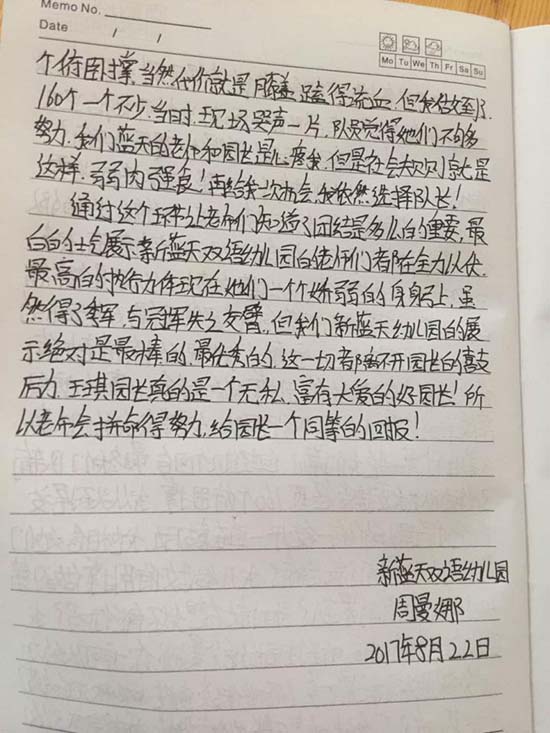 Memo No.
Date / /
Mo Tu We Th Fr Sa Su
个俯卧撑,当然代价就是膝盖 磕得流血,但我做到了.
160个一个不少.当时,现场哭声一片,队员觉得她们不够多
努力.我们蓝天的老师和园长是心疼我,但是社会规则就是
这样,弱肉强食!再给我一次机会,我依然选择队长!
通过这个环节让老师们知道了团结是多么的重要,最
后的士气展示.新蓝天双语幼儿园的老师们都在全力以赴.
最高的执行力体现在她们一个个娇弱的身身上,虽
然得了季军,与冠军失之交臂,但我们新蓝天幼儿园的展
示绝对是最棒的,最优秀的.这一切都离不开园长的鼓
后力.王琪园长真的是一个无私,富有大爱的好园长!所
以老师会拼命得努力,给园长一个同等的回报!
新蓝天双语幼儿园
周曼娜
2017年8月22日